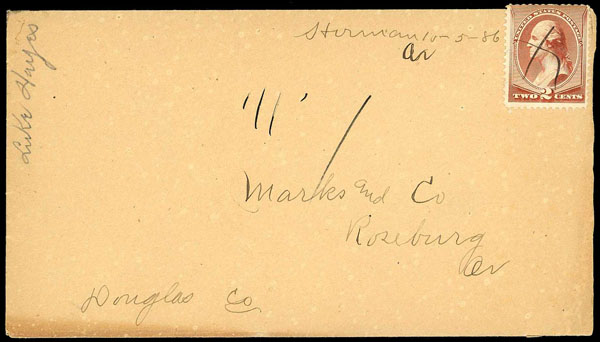 Luke Hayes
Sherman 10-5-86
Or
UNITED STATES POSTAGE
TWO 2 CENTS
Marks and Co
Roseburg
Or
Douglas Co